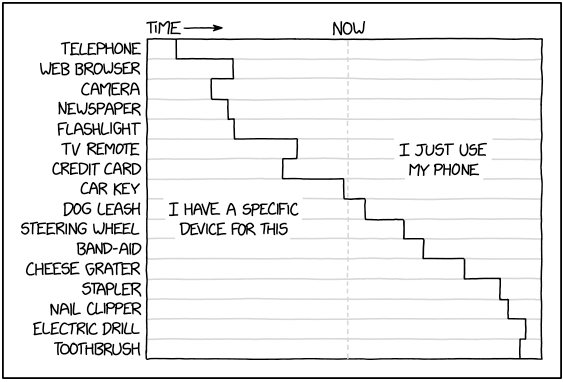 TIME → NOW
TELEPHONE
WEB BROWSER
CAMERA
NEWSPAPER
FLASHLIGHT
TV REMOTE
CREDIT CARD
CAR KEY
DOG LEASH
STEERING WHEEL
BAND-AID
CHEESE GRATER
STAPLER
NAIL CLIPPER
ELECTRIC DRILL
TOOTHBRUSH
I JUST USE
MY PHONE
I HAVE A SPECIFIC
DEVICE FOR THIS